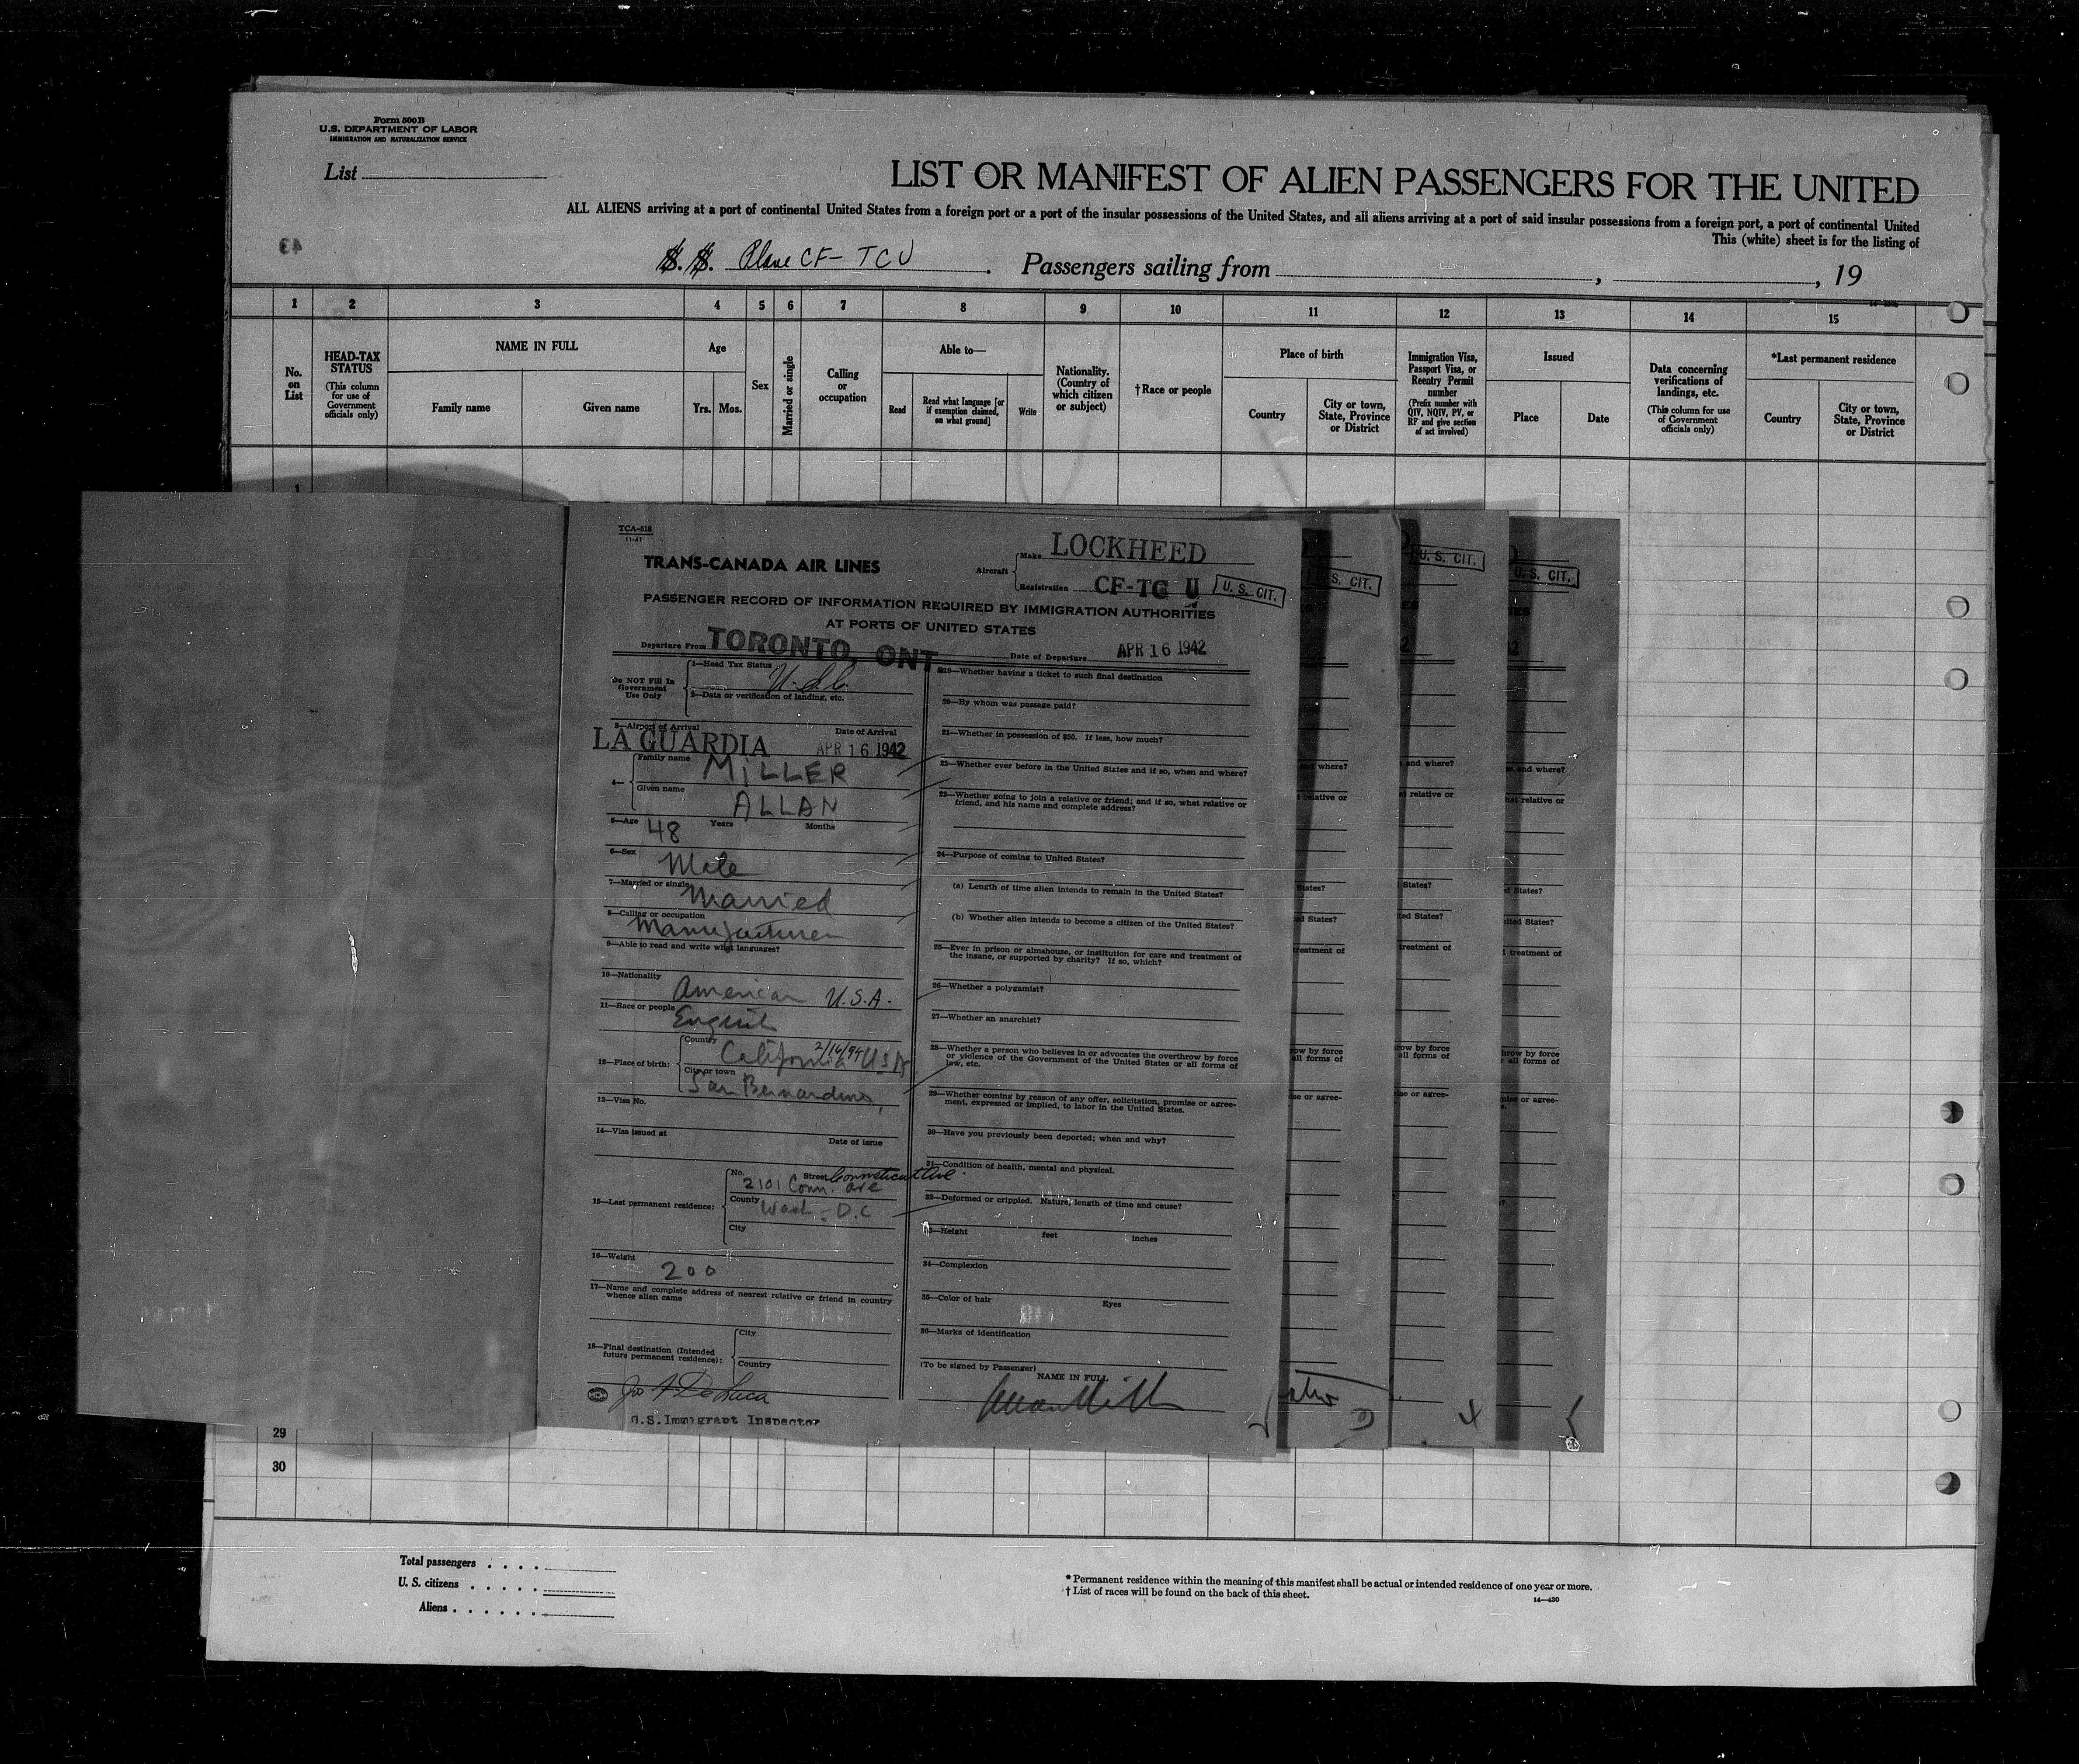 Form 500B
U.S. DEPARTMENT OF LABOR
IMMIGRATION AND NATURALIZATION SERVICE
List
LIST OR MANIFEST OF ALIEN PASSENGERS FOR THE UNITED
ALL ALIENS arriving at a port of continental United States from a foreign port or a port of the insular possessions of the United States, and all aliens arriving at a port of said insular possessions from a foreign port, a port of continental United
This (white) sheet is for the listing of
43
S.S. Plane CF- TCU . Passengers sailing from , , 19
1 2 3 4 5 6 7 8 9 10 11 12 13 14 15
No. on List
HEAD-TAX STATUS
(This column for use of Government officials only)
NAME IN FULL
Family name Given name
Age
Yrs. Mos.
Sex
Married or single
Calling or occupation
Able to—
Read
Read what language [or if exemption claimed, on what ground]
Write
Nationality. (Country of which citizen or subject)
†Race or people
Place of birth
Country
City or town, State, Province or District
Immigration Visa, Passport Visa, or Reentry Permit number
(Prefix number with QIV, NQIV, PV, or RF and give section of act involved)
Issued
Place Date
Data concerning verifications of landings, etc.
(This column for use of Government officials only)
*Last permanent residence
Country
City or town, State, Province or District
1
TCA-518
11-41
TRANS-CANADA AIR LINES
Aircraft
Make LOCKHEED
Registration CF-TC U
U. S. CIT.
U. S. CIT.
U. S. CIT.
S. CIT.
PASSENGER RECORD OF INFORMATION REQUIRED BY IMMIGRATION AUTHORITIES
AT PORTS OF UNITED STATES
Departure From TORONTO, ONT Date of Departure APR 16 1942
Do NOT Fill In Government Use Only
1—Head Tax Status U.S.C.
2—Data or verification of landing, etc.
3—Airport of Arrival Date of Arrival
LA GUARDIA APR 16 1942
4— Family name MILLER
Given name ALLAN
5—Age 48 Years Months
6—Sex Male
7—Married or single Married
8—Calling or occupation
Manufacturer
9—Able to read and write what languages?
10—Nationality American U.S.A.
11—Race or people English
12—Place of birth:
Country California 2/16/94 USA
City or town San Bernardino,
13—Visa No.
14—Visa issued at Date of issue
15—Last permanent residence:
No. Street Connecticut Ave
2101 Conn. Ave
County Wash. D.C
City
16—Weight 200
17—Name and complete address of nearest relative or friend in country whence alien came
18—Final destination (Intended future permanent residence):
City
Country
Jos A De Luca
U.S. Immigrant Inspector
19—Whether having a ticket to such final destination
20—By whom was passage paid?
21—Whether in possession of $50. If less, how much?
22—Whether ever before in the United States and if so, when and where?
23—Whether going to join a relative or friend; and if so, what relative or friend, and his name and complete address?
24—Purpose of coming to United States?
(a) Length of time alien intends to remain in the United States?
(b) Whether alien intends to become a citizen of the United States?
25—Ever in prison or almshouse, or institution for care and treatment of the insane, or supported by charity? If so, which?
26—Whether a polygamist?
27—Whether an anarchist?
28—Whether a person who believes in or advocates the overthrow by force or violence of the Government of the United States or all forms of law, etc.
29—Whether coming by reason of any offer, solicitation, promise or agreement, expressed or implied, to labor in the United States.
30—Have you previously been deported; when and why?
31—Condition of health, mental and physical.
32—Deformed or crippled. Nature, length of time and cause?
33—Height feet inches
34—Complexion
35—Color of hair Eyes
36—Marks of Identification
(To be signed by Passenger)
NAME IN FULL
Allan Miller
29
30
Total passengers
U. S. citizens
Aliens
* Permanent residence within the meaning of this manifest shall be actual or intended residence of one year or more.
† List of races will be found on the back of this sheet.
14—430